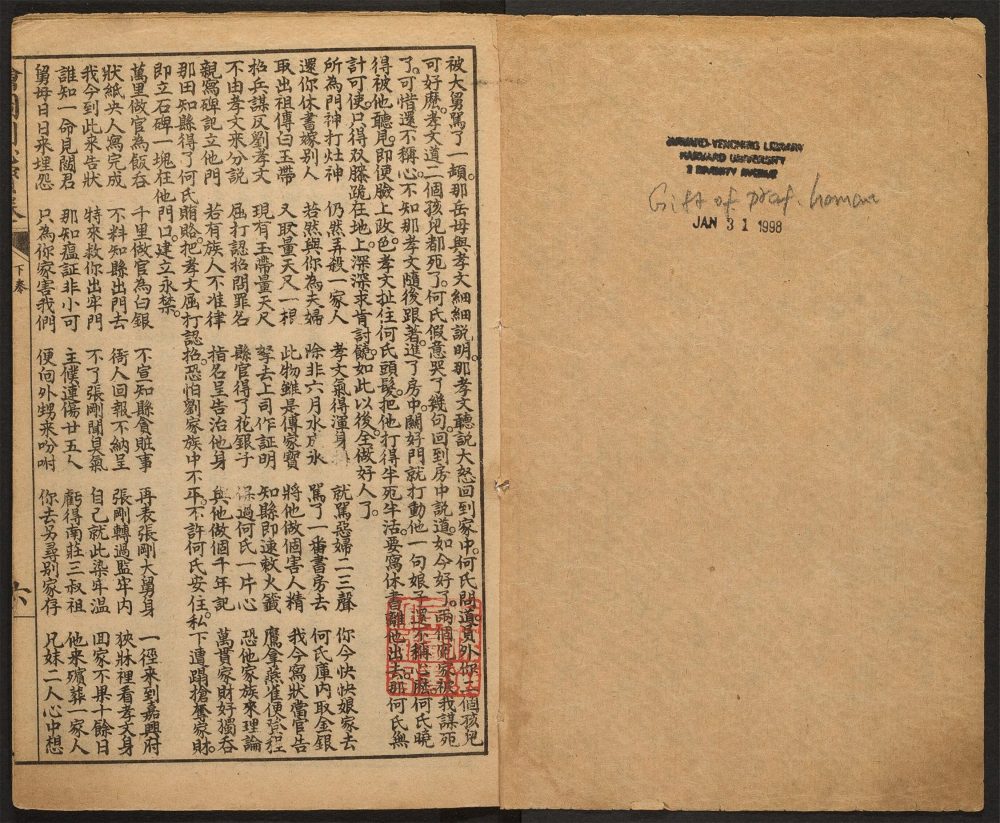 被大舅罵了一頓。那岳母與孝文細細說明。那孝文聽說大怒回到家中。何氏問道。員外你三個孩兒
可好麽。孝文道。二個孩兒都死了。何氏假意哭了幾句。回到房中說道。如今好了。兩個冤家被我謀死
了。可惜還不稱心。不知那孝文隨後跟著。進了房中。關好門就打動他一句娘子還不稱心麽。何氏曉
得被他聽見。即便臉上改色。孝文扯住何氏頭髮。把他打得半死半活。要寫休書離他出去。那何氏無
計可使。只得双膝跪在地上。深深求肯討饒。如此以後全做好人了。
所為門神打灶神 仍然弄殺一家人 孝文氣得渾身 就罵惡婦二三聲 你今快快娘家去
還你休書嫁別人 若然與你為夫婦 除非六月水成氷 罵了一番書房去 何氏庫內取金銀
取出祖傳白玉帶 又取量天尺一根 此物雖是傳家寶 將他做個害人精 我今寫狀當官告
招兵謀反劉孝文 現有玉帶量天尺 拏去上司作証明 知縣即速敕火籤 鷹拿燕雀便登程
不由孝文來分說 屈打認招問罪名 縣官得了花銀子 過何氏一片心 恐他家族來理論
親寫碑記立他門 若有族人不准律 指名呈告治他身 與他做個千年記 萬貫家財好獨吞
那田知縣得了何氏賄賂。把孝文屈打認招。恐怕劉家族中不平。不許何氏安住。私下遭蹋搶奪家財。
即立石碑一塊在他門口。建立永禁。
萬里做官為飯吞 千里做官為白銀 不宣知縣貪賍事 再表張剛大舅身 一徑來到嘉興府
狀紙央人寫完成 不料知縣出門去 衙人回報不納呈 張剛轉過監牢內 狹牀裡看孝文身
我今到此來告狀 特來救你出牢門 不了張剛聞臭氣 自己就此染牢温 回家不果十餘日
誰知一命見閻君 那知瘟証非小可 主僕連傷廿五人 虧得南莊三叔祖 他來殯葬一家人
舅母日日來埋怨 只為你家害我們 便向外甥來吩咐 你去另尋別家存 兄妹二人心中想
下卷
六
HARVARD-YENCHING LIBRARY
HARVARD UNIVERSITY
2 DIVINITY AVENUE
Gift of Prof. Hanan
JAN 31 1998